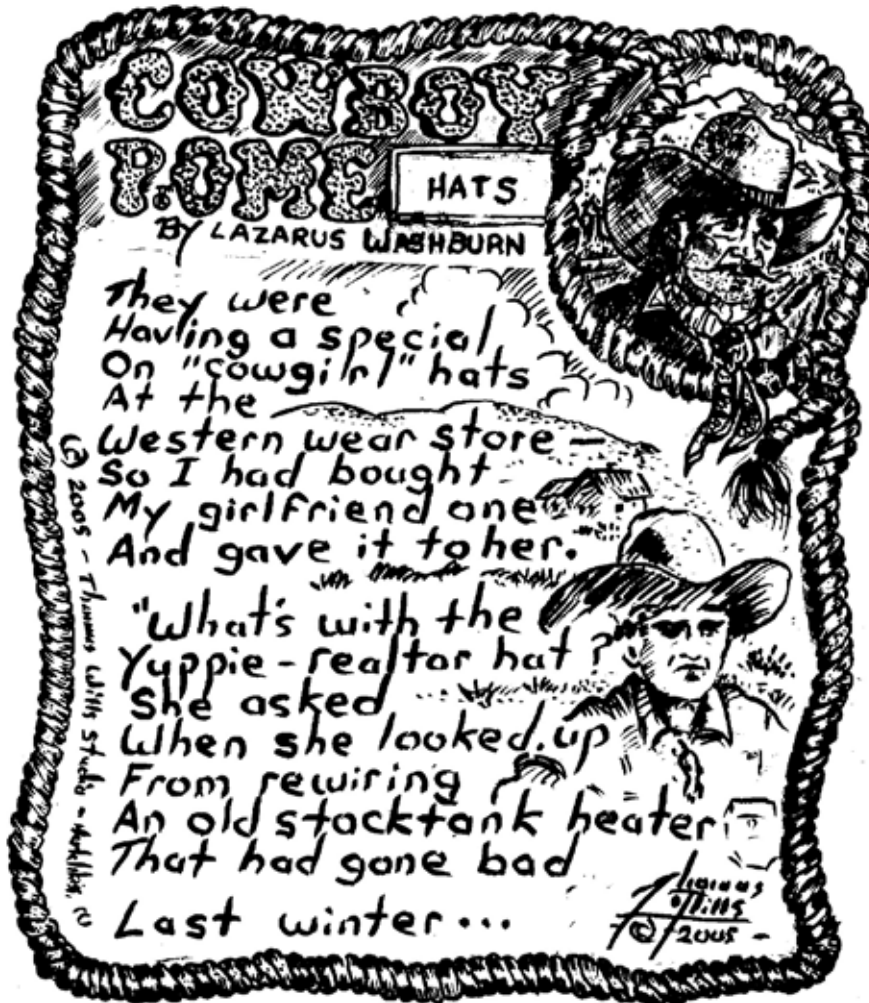 COWBOY
POME
HATS
By LAZARUS WASHBURN
They were
Having a special
On "cowgirl" hats
At the
Western wear store —
So I had bought
My girlfriend one
And gave it to her.
"What's with the
Yuppie-realtor hat?
She asked
When she looked up
From rewiring
An old stocktank heater
That had gone bad
Last winter...
Thomas
Wills
© 2005 -
(c) 2005 - Thomas Wills Studio -